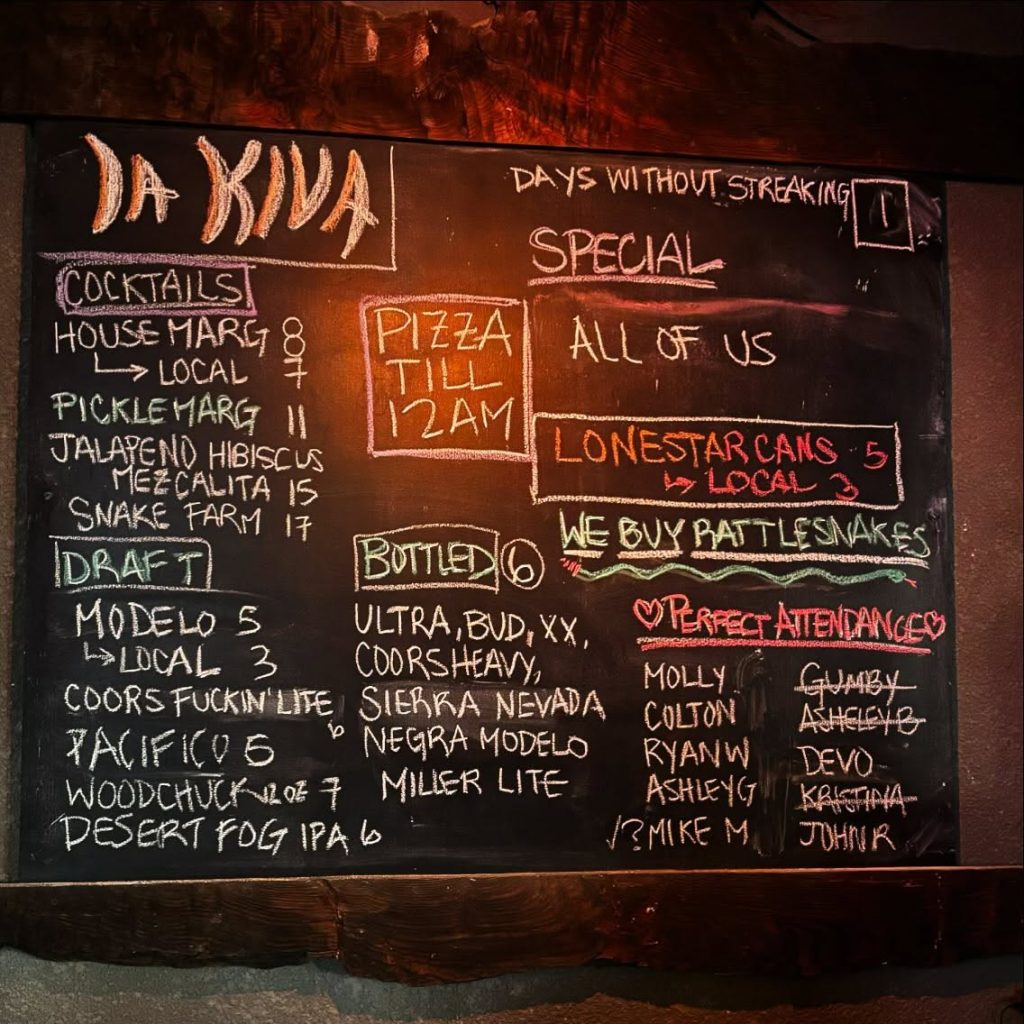 LA KIVA
DAYS WITHOUT STREAKING 1
SPECIAL
ALL OF US
COCKTAILS
HOUSE MARG 8
↳ LOCAL 7
PICKLE MARG 11
JALAPENO HIBISCUS
MEZCALITA 15
SNAKE FARM 17
PIZZA
TILL
12AM
LONESTAR CANS 5
↳ LOCAL 3
WE BUY RATTLESNAKES
DRAFT
MODELO 5
↳ LOCAL 3
COORS FUCKIN' LITE
6
PACIFICO 6
WOODCHUCK 12OZ 7
DESERT FOG IPA 6
BOTTLED 6
ULTRA, BUD, XX,
COORS HEAVY,
SIERRA NEVADA
NEGRA MODELO
MILLER LITE
♡PERFECT ATTENDANCE♡
MOLLY GUMBY
COLTON ASHELEY B
RYAN W DEVO
ASHLEY G KRISTINA
/? MIKE M JOHN R